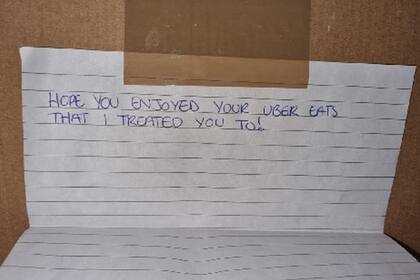 HOPE YOU ENJOYED YOUR UBER EATS
THAT I TREATED YOU TO!